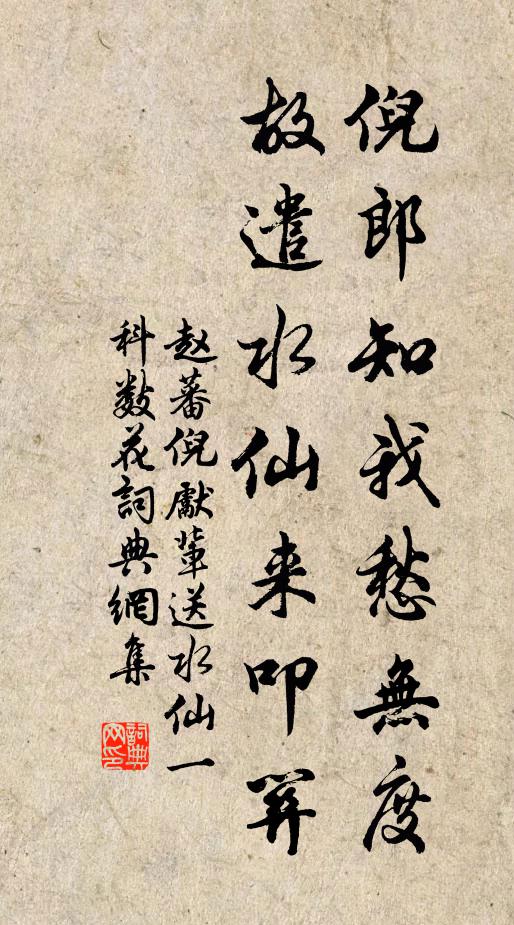 倪郎知我愁無度
故遣水仙来叩關
赵蕃倪獻輩送水仙一
科数花詞典網集
詞典
网印